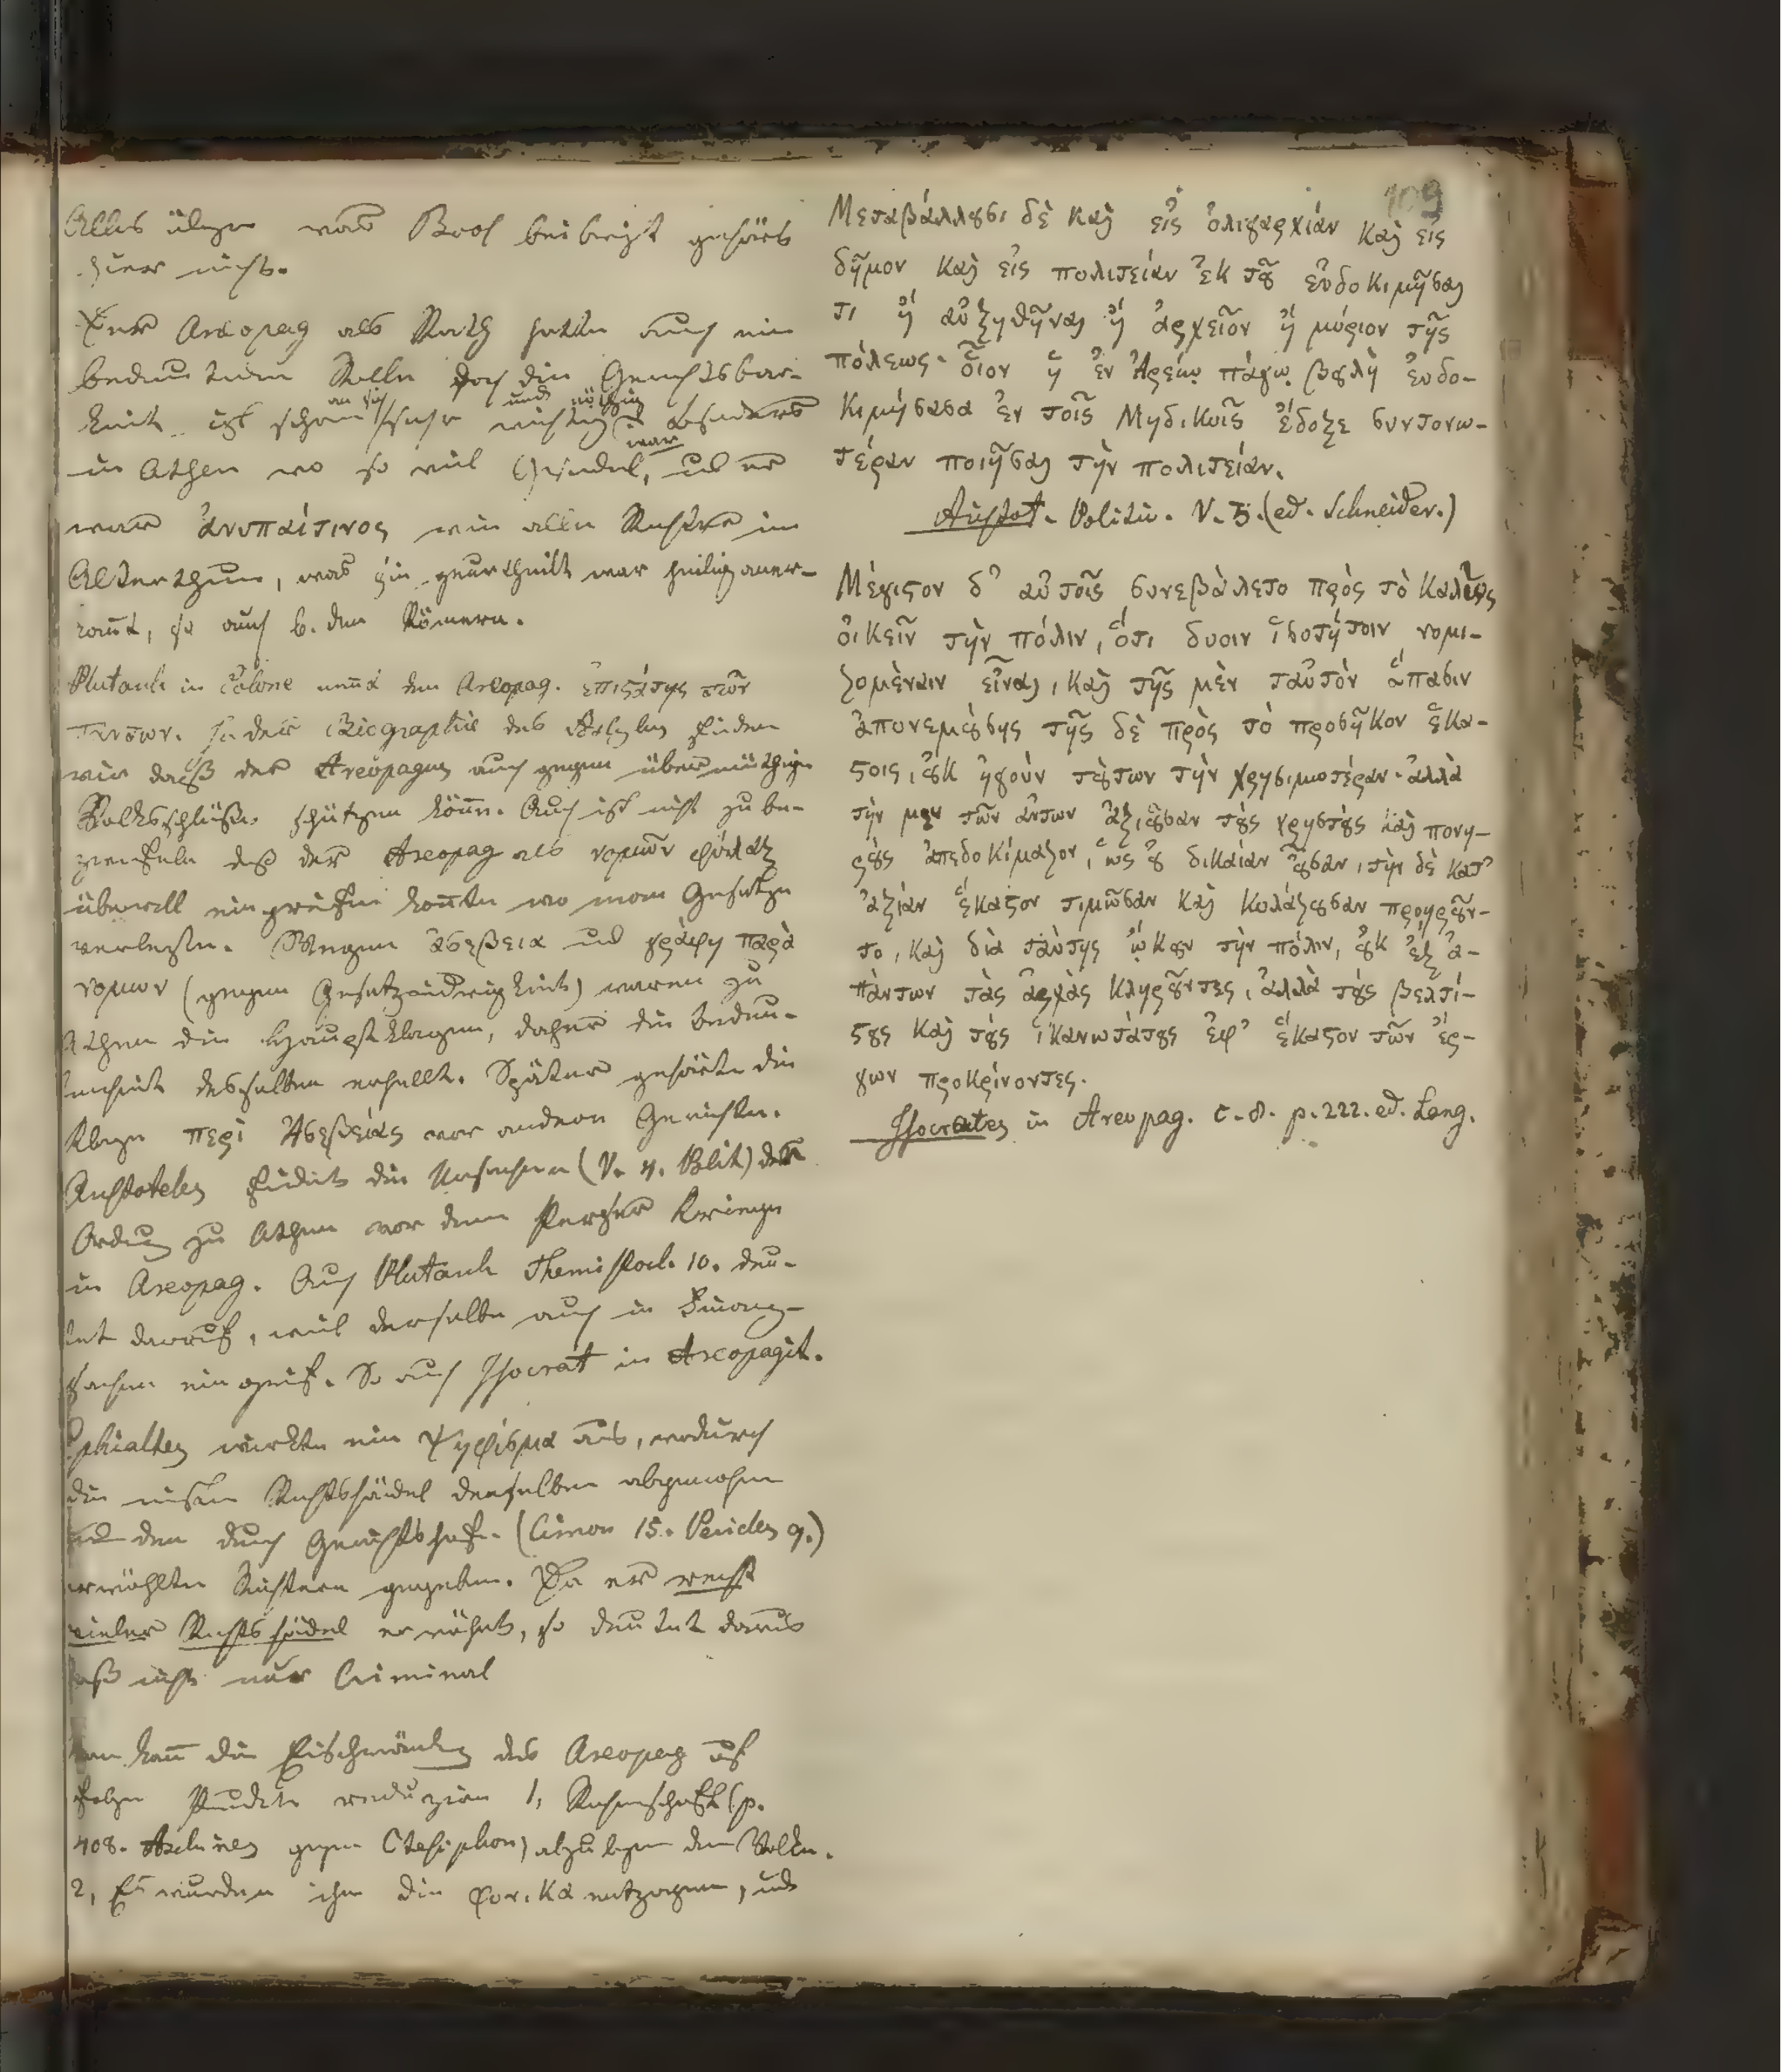 Alles übrige was Boos beibringt gehört
hier nicht.
Der Areopag als Rath hatte auch eine
bedeutende Stelle doch die Gerichtsbar-
keit ist schon an sich sehr wichtig und nöthig besonders
in Athen wo so viel Gesindel war, und er
war ἀνυπαίτινος wie alle Richter im
Alterthum, was hier geurtheilt war heilig aner-
kannt, so auch b. den Römern.
Plutarch in Solone nennt den Areopag. ἐπιϛάτης τῶν
πάντων. In der Biographie des Aeschylus finden
wir daß der Areopagus auch gegen übermüthige
Volksschlüße schützen könne. Auch ist nicht zu be-
zweifeln daß der Areopag als νομῶν φύλαξ
überall eingreifen konnte wo man Gesetze
verletzte. Wegen ἀσεβεια und γράφη παρὰ
νομων (gegen Gesetzwidrigkeit) waren zu
Athen die Hauptklagen, daher die bedeu-
tenheit desselben erhellt. Später gehörte die
Klage περὶ Ἀσεβείας vor andern Gerichten.
Aristoteles findet die Ursachen (V. 4. Polit) der
Ordnung zu Athen vor dem Perser Kriege
in Areopag. Auch Plutarch Themistocl. 10. deu-
tet darauf, weil derselbe auch in Finanz-
sachen eingriff. So auch Isocrat in Areopagit.
Ephialtes wirkte ein Ψηφίσμα aus, wodurch
die meisten Rechtshändel denselben abgenohmen
und den durch Gerichtshöfe (Cimon 15. Pericles 9.)
erwählten Richtern gegeben. Da er recht
vieler Rechtshändel erwähnt, so deutet daraus
daß nicht nur Criminal
Man kann die Einschränkung des Areopag auf
folgen Punckte reduziren 1, Rechenschaft (p.
408. Aeschines gegen Ctesiphon) abzulegen dem Volke.
2, Es wurden ihm die φονικα entzogen, und
109
Μεταβάλλȣσι δὲ καὶ εἰς ὀλιγαρχίαν καὶ εἰς
δῆμον καὶ εἰς πολιτείαν ἐκ τȣ͂ εὐδοκιμῆσαι
τι ἢ αὐξηθῆναι ἢ ἀρχεῖον ἢ μόριον τῆς
πόλεως· οἷον ἡ ἐν Ἀρείῳ πάγῳ βȣλὴ εὐδο-
κιμήσασα ἐν τοῖς Μηδικοῖς ἔδοξε συντονω-
τέραν ποιῆσαι τὴν πολιτείαν.
Aristot. Politic. V. 3. (ed. Schneider.)
Μέγιϛον δ' αὐτοῖς συνεβάλετο πρὸς τὸ καλῶς
οἰκεῖν τὴν πόλιν, ὅτι δυοιν ἰσοτήτοιν νομι-
ζομέναιν εἶναι, καὶ τῆς μὲν ταὐτὸν ἅπασιν
ἀπονεμȣ́σης τῆς δὲ πρὸς τὸ προσῆκον ἑκά-
ϛοις, ȣ̓κ ἠγοὺν τȣ́των τὴν χρησιμωτέραν· ἀλλὰ
τὴν μεν τῶν αὐτων ἀξιȣ͂σαν τȣ̀ς χρηστȣ̀ς καὶ πονη-
ρȣ̀ς ἀπεδοκίμαζον, ὡς ȣ̓ δικαίαν ȣ̓͂σαν, τὴν δὲ κατ'
ἀξίαν ἕκαϛον τιμῶσαν καὶ κολάζȣσαν προῃρȣ͂ν-
το, καὶ διὰ ταύτης ᾤκȣν τὴν πόλιν, ȣ̓κ ἐξ ἁ-
πάντων τὰς ἀρχὰς κληρȣ͂ντες, ἀλλὰ τȣ̀ς βελτί-
ϛȣς καὶ τȣ̀ς ἱκανωτάτȣς ἐφ' ἕκαϛον τῶν ἔρ-
γων προκρίνοντες.
Isocrates in Areopag. c. 8. p. 222. ed. Lang.